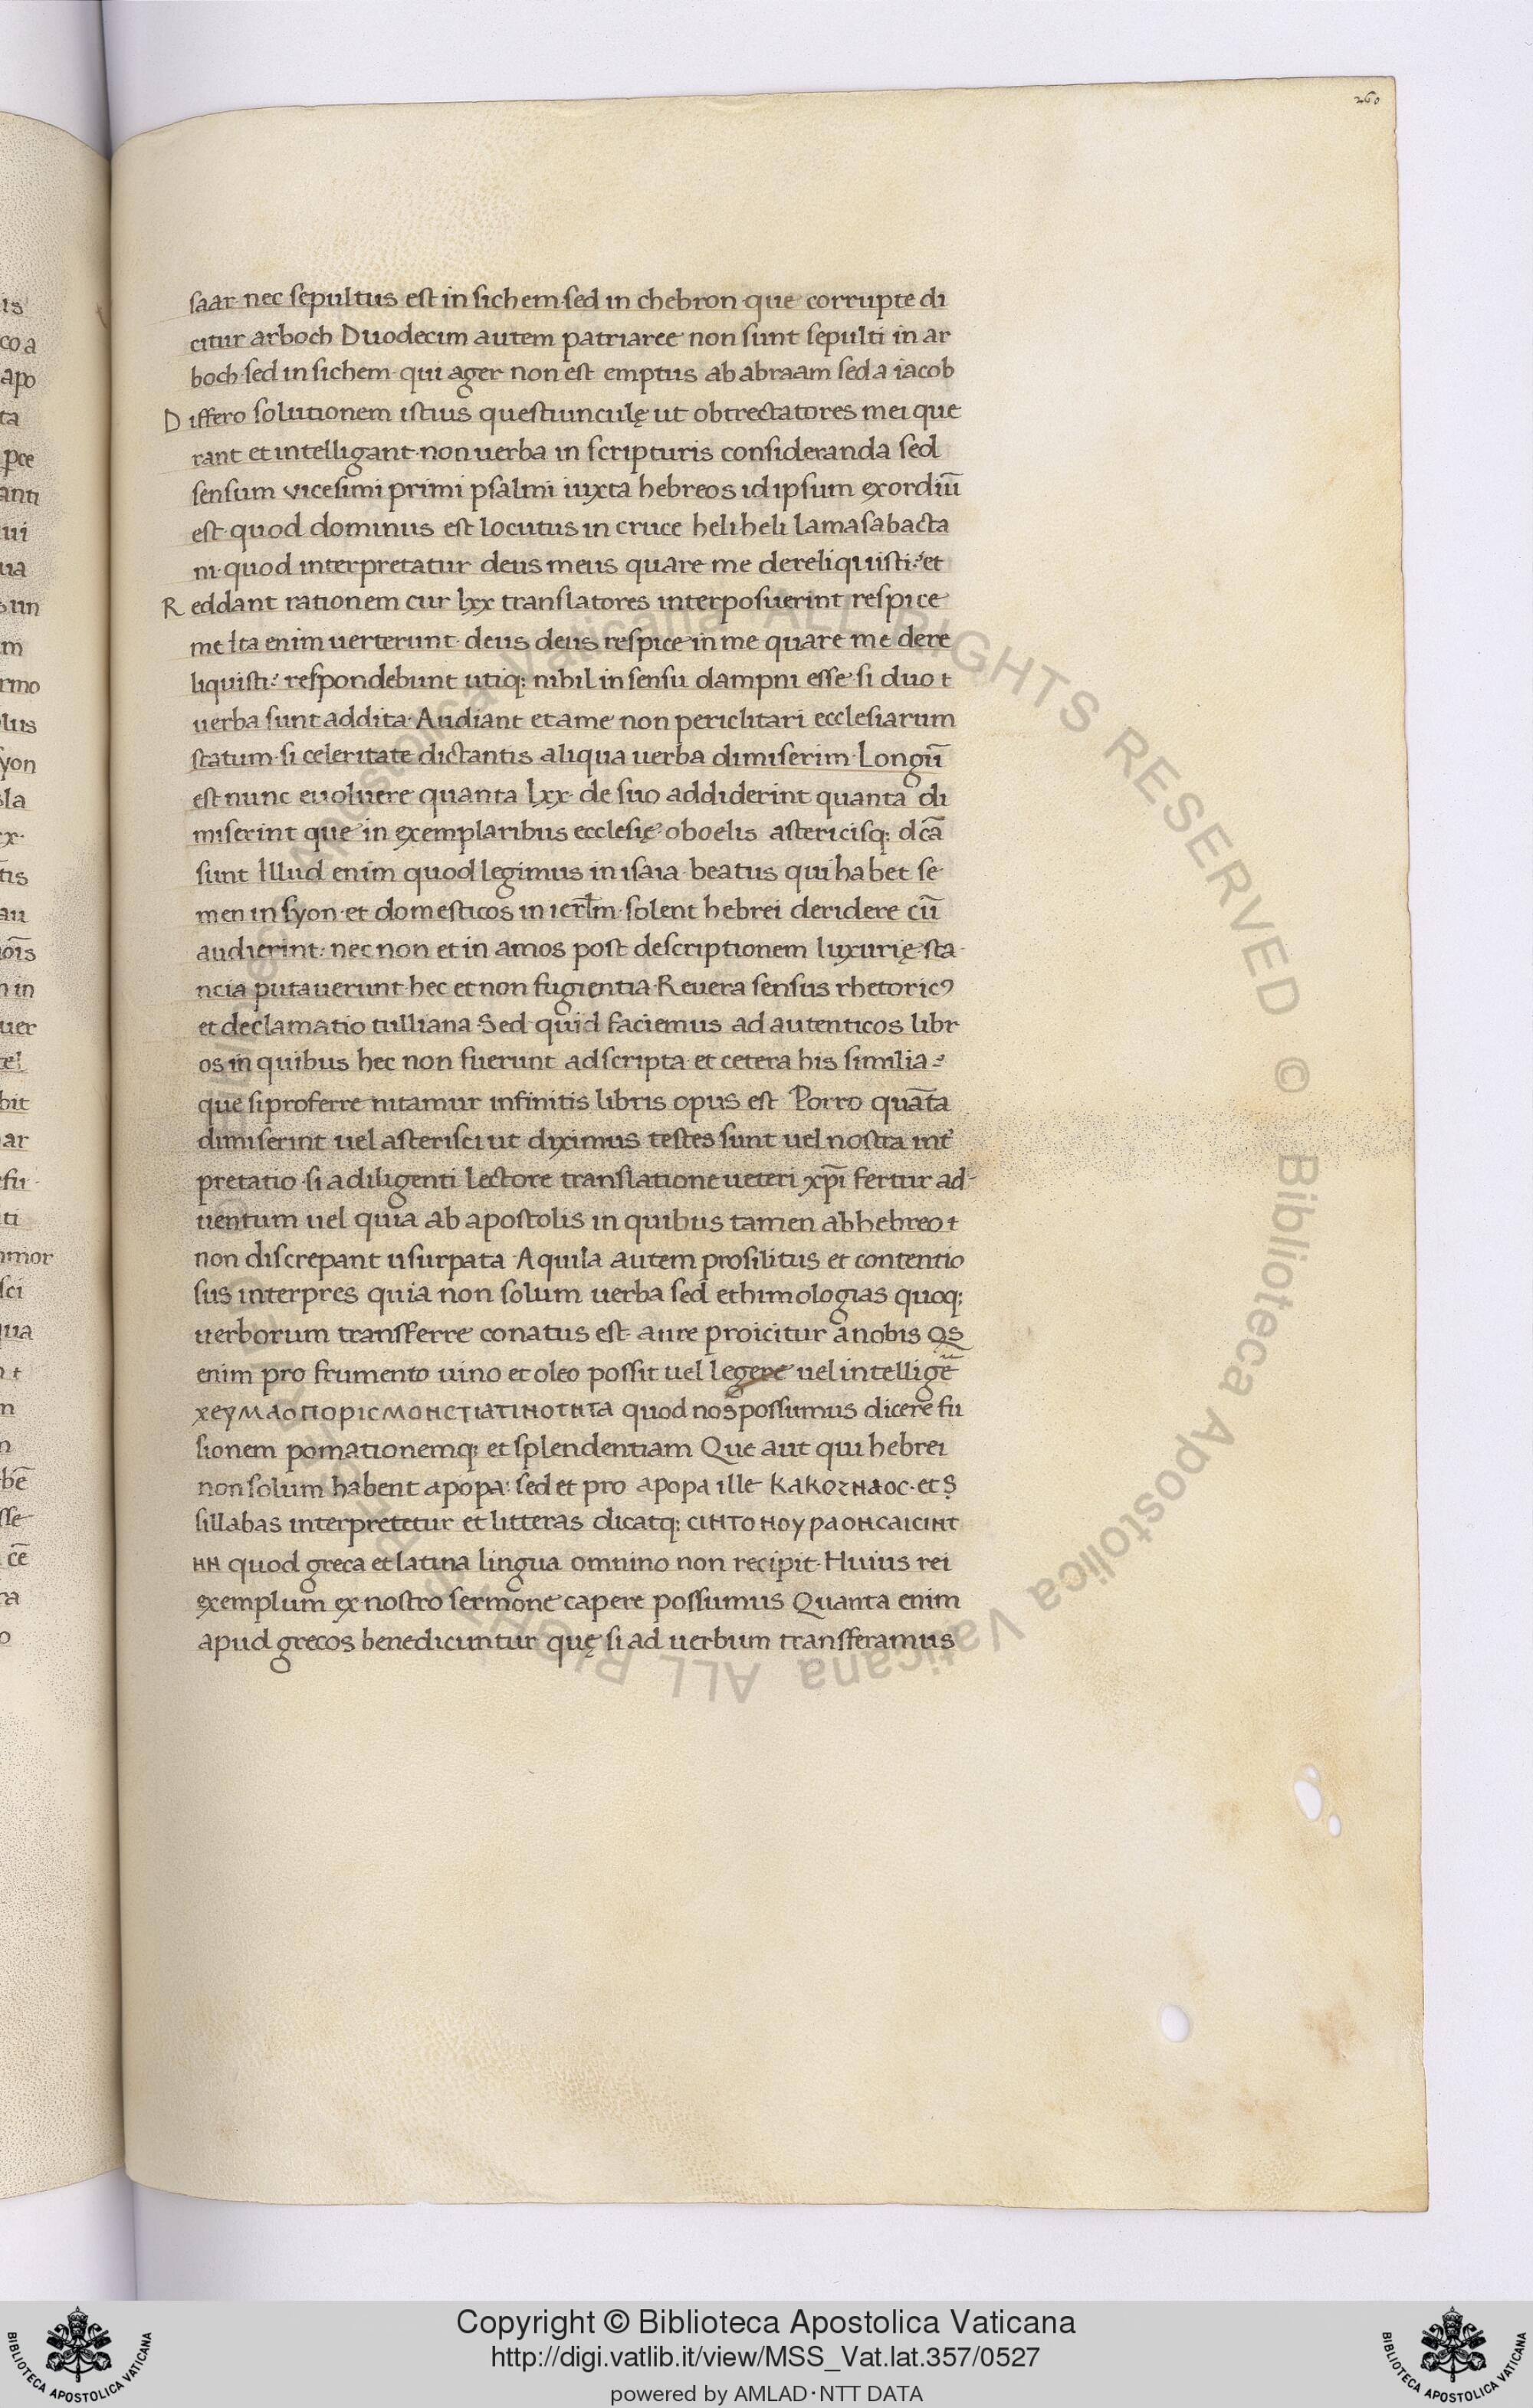 260
saar nec sepultus est in sichem·sed in chebron·que corrupte di
citur arboch Duodecim autem patriarce non sunt sepulti in ar
boch·sed in sichem·qui ager non est emptus ab abraam sed a iacob
Differo solutionem istius questiunculę ut obtrectatores mei que
rant et intelligant·non uerba in scripturis consideranda sed
sensum vicesimi primi psalmi iuxta hebreos id ipsum exordiū
est·quod dominus est locutus in cruce heli heli lamasabacta
ni·quod interpretatur deus meus quare me dereliquisti·et
Reddant rationem cur lxx translatores interposuerint respice
me Ita enim uerterunt·deus deus respice in me quare me dere
liquisti· respondebunt utiq; nihil in sensu dampni esse si duo t
uerba sunt addita·Audiant et a me non periclitari ecclesiarum
statum·si celeritate dictantis aliqua uerba dimiserim·Longū
est nunc euoluere quanta lxx· de suo addiderint quanta di
miserint que in exemplaribus ecclesię oboelis astericisq; dcā
sunt Illud enim quod legimus in isaia·beatus qui habet se
men in syon·et domesticos in ierl̄m·solent hebrei deridere cū
audierint· nec non et in amos post descriptionem luxurię·sta
ncia putauerunt·hec et non fugientia·Reuera sensus rhetoricꝰ
et declamatio tulliana·Sed quid faciemus ad autenticos libr
os in quibus hec non fuerunt adscripta·et cetera his similia·
que si proferre nitamur infinitis libris opus est Porro quāta
dimiserint uel asterisci ut diximus testes sunt uel nostra int̄
pretatio·si a diligenti lectore translatione ueteri xp̄i fertur ad-
uentum uel quia ab apostolis in quibus tamen ab hebreo t
non discrepant usurpata Aquila autem prosilitus et contentio
sus interpres quia non solum uerba sed ethimologias quoq;
uerborum transferre conatus est·aure proicitur a nobis Qs
enim pro frumento uino et oleo possit uel legere uel intelligē
χευμαοπορισμονστιατινοτητα quod nos possumus dicere fu
sionem pomationemq; et splendentiam Que aut qui hebrei
non solum habent apopa· sed et pro apopa ille κακοζηλος·et s̩
sillabas interpretetur et litteras dicatq; σιντονουραονσαισιντ
нн quod greca et latina lingua omnino non recipit·Huius rei
exemplum ex nostro sermone capere possumus Quanta enim
apud grecos benedicuntur quę si ad uerbum transferamus
is
co a
apo
ta
ꝑce
anti
ui
ua
s un
m
rmo
lus
yon
sla
ex·
tis
au
ōis
n in
uer
tel
bit
ar
fu·
ti
mor
sci
qua
n t
m
n
bē
sse
cē
ra
o
© Biblioteca Apostolica Vaticana ALL RIGHTS RESERVED
Copyright © Biblioteca Apostolica Vaticana
http://digi.vatlib.it/view/MSS_Vat.lat.357/0527
powered by AMLAD·NTT DATA
BIBLIOTECA APOSTOLICA VATICANA
BIBLIOTECA APOSTOLICA VATICANA